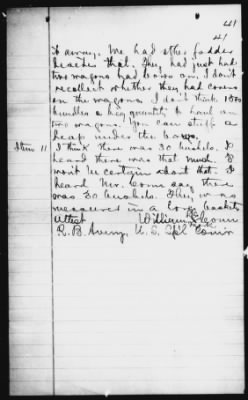 41
41
it away. We had other fodder
besides that. They had just had
two wagons had boxes on. I don't
recollect whether they had covers
on the wagons. I don't think 1500
bundles a big quantity to haul on
two wagons. You can stuff a
heap under the boxes.
Item 11 I think there was 30 bushels. I
heard there was that much. I
won't be certain about that. I
heard Mr. say there
was 30 bushels. They was
measured in a basket
Attest William
R. B. Avery, U. S. Spl Comr